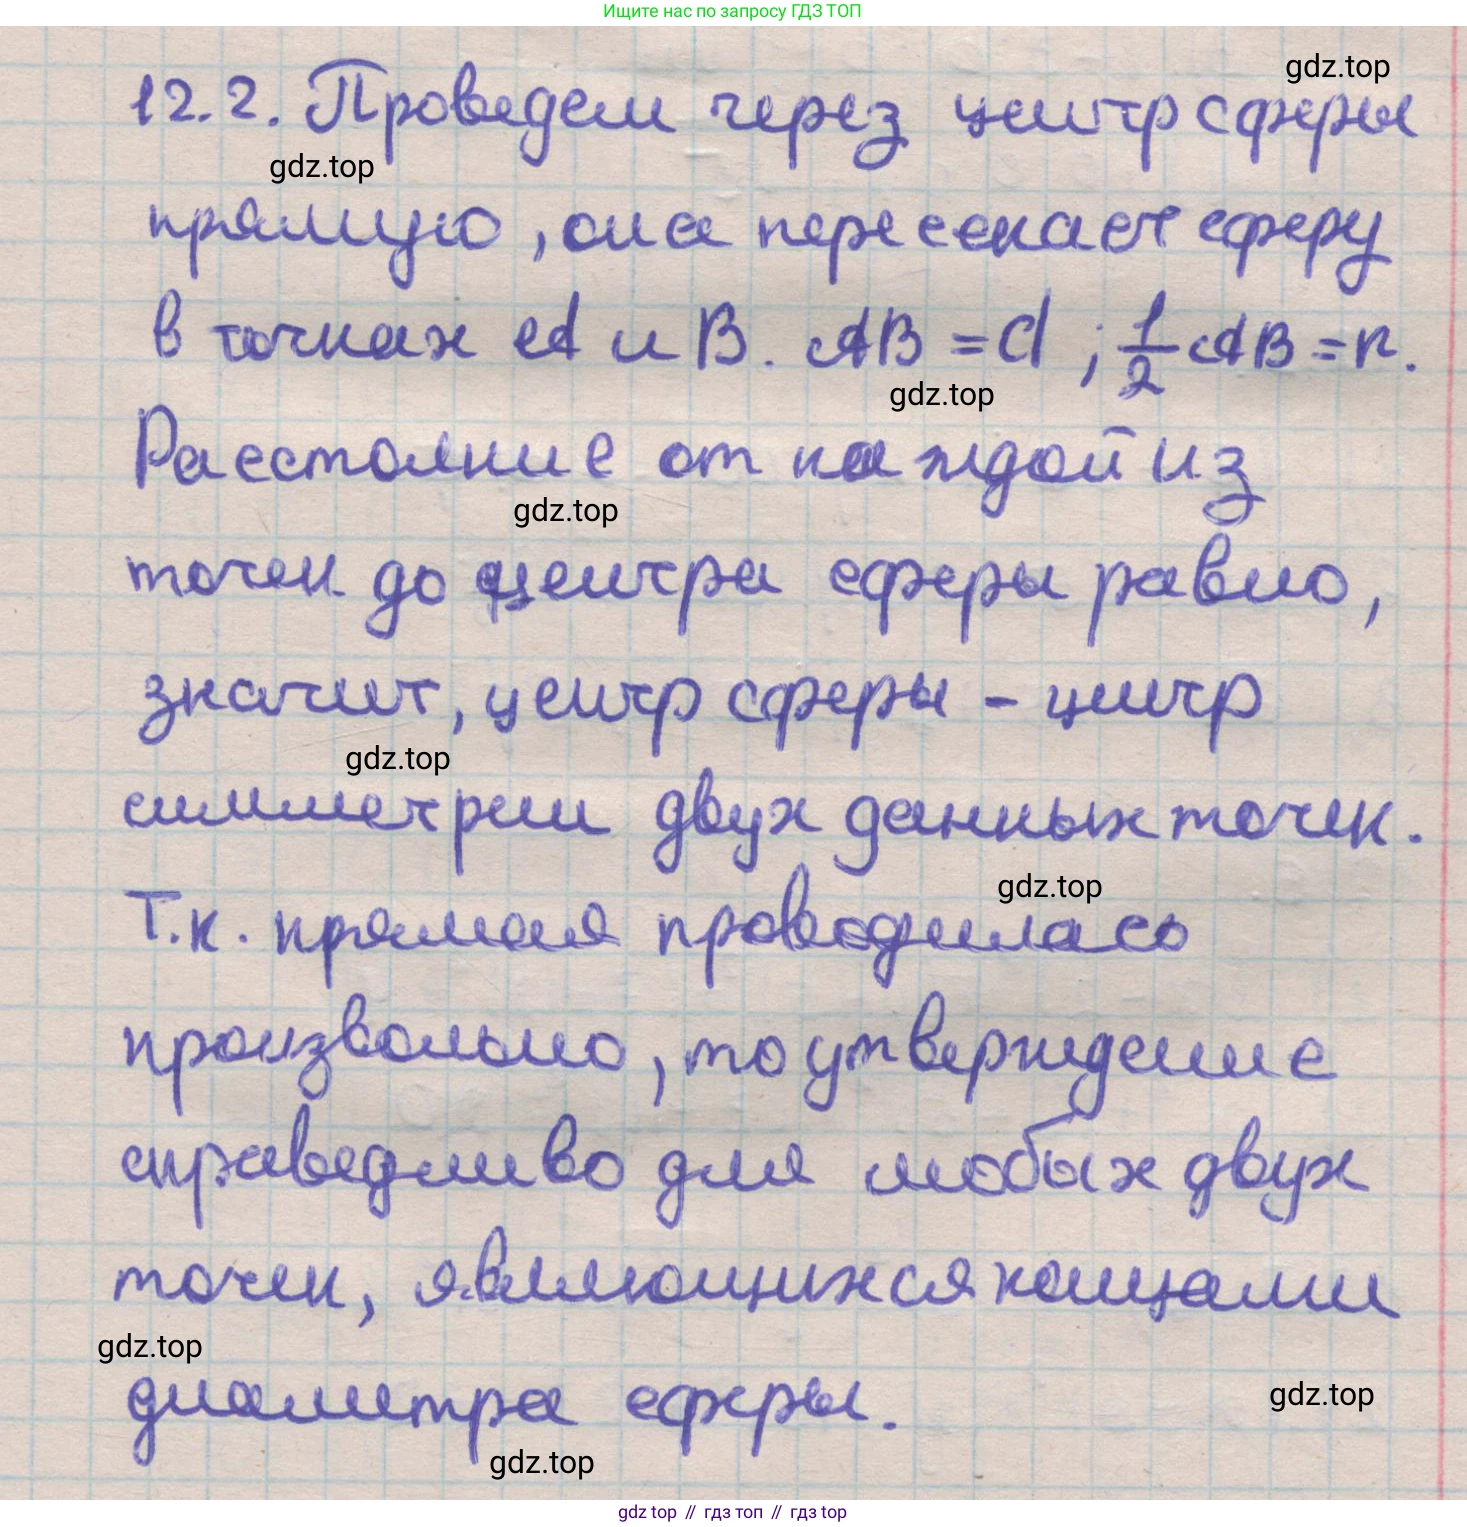 Ищите нас по запросу ГДЗ ТОП
gdz.top
12.2. Проведем через центр сферы
gdz.top
прямую, она пересекает сферу
в точках A и B. AB = d ; 1/2 AB = r.
gdz.top
Расстояние от каждой из
gdz.top
точек до центра сферы равно,
значит, центр сферы - центр
gdz.top
симметрии двух данных точек.
gdz.top
Т.к. прямая проводилась
произвольно, то утверждение
справедливо для любых двух
точек, являющихся концами
gdz.top
диаметра сферы.
gdz.top
gdz.top
gdz top // гдз топ // гдз top